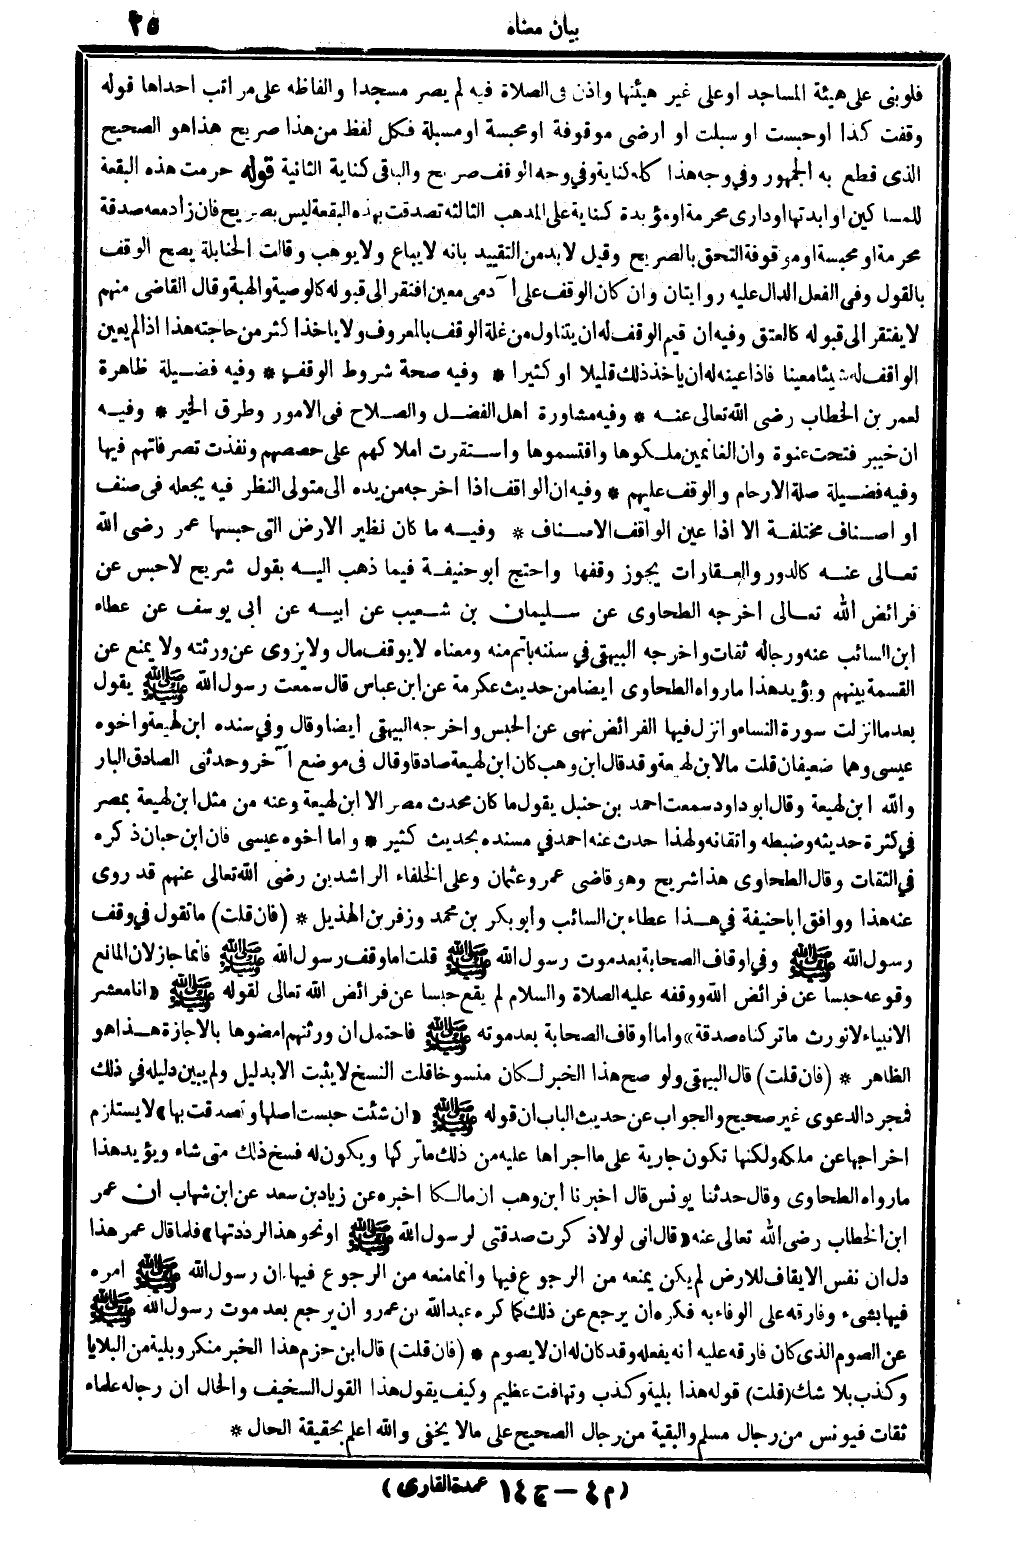 بيان معناه ٢٥
فلو بنى على هيئة المساجد أو على غير هيئتها واذن فى الصلاة فيه لم يصر مسجدا والفاظه على مراتب احداها قوله
وقفت كذا او حبست او سبلت او ارضى موقوفة او محبسة او مسبلة فكل لفظ من هذا صريح هذا هو الصحيح
الذى قطع به الجمهور وفي وجه هذا كله كناية وفي وجه الوقف صريح والباقى كناية الثانية قوله حرمت هذه البقعة
للمساكين او ابدتها او دارى محرمة او مؤبدة كناية على المذهب الثالثه تصدقت بهذه البقعة ليس بصريح فان زاد معه صدقة
محرمة او محبسة او موقوفة التحق بالصريح وقيل لابد من التقييد بانه لا يباع ولا يوهب وقالت الحنابلة يصح الوقف
بالقول وفى الفعل الدال عليه روايتان وان كان الوقف على آدمى معين افتقر الى قبوله كالوصية والهبة وقال القاضى منهم
لا يفتقر الى قبوله كالعتق وفيه ان قيم الوقف له ان يتناول من غلة الوقف بالمعروف ولا ياخذ اكثر من حاجته هذا اذا لم يعين
الواقف له شيئا معينا فاذا عينه له ان ياخذ ذلك قليلا او كثيرا * وفيه صحة شروط الوقف * وفيه فضيلة ظاهرة
لعمر بن الخطاب رضى الله تعالى عنه * وفيه مشاورة اهل الفضل والصلاح فى الامور وطرق الخير * وفيه
ان خيبر فتحت عنوة وان الغانمين ملكوها واقتسموها واستقرت املاكهم على حصصهم ونفذت تصرفاتهم فيها
وفيه فضيلة صلة الارحام والوقف عليهم * وفيه ان الواقف اذا اخرجه من يده الى متولى النظر فيه يجعله فى صنف
او اصناف مختلفة الا اذا عين الواقف الاصناف * وفيه ما كان نظير الارض التى حبسها عمر رضى الله
تعالى عنه كالدور والعقارات يجوز وقفها واحتج ابو حنيفة فيما ذهب اليه بقول شريح لا حبس عن
فرائض الله تعالى اخرجه الطحاوى عن سليمان بن شعيب عن ابيه عن ابى يوسف عن عطاء
ابن السائب عنه ورجاله ثقات واخرجه البيهقى في سننه باتم منه ومعناه لا يوقف مال ولا يزوى عن ورثته ولا يمنع عن
القسمة بينهم ويؤيد هذا ما رواه الطحاوى ايضا من حديث عكرمة عن ابن عباس قال سمعت رسول الله ﷺ يقول
بعد ما انزلت سورة النساء وانزل فيها الفرائض نهى عن الحبس واخرجه البيهقى ايضا وقال وفي سنده ابن لهيعة واخوه
عيسى وهما ضعيفان قلت مالابن لهيعة وقد قال ابن وهب كان ابن لهيعة صادقا وقال فى موضع آخر وحدثنى الصادق البار
والله ابن لهيعة وقال ابو داود سمعت احمد بن حنبل يقول ما كان محدث مصر الا ابن لهيعة وعنه من مثل ابن لهيعة بمصر
في كثرة حديثه وضبطه واتقانه ولهذا حدث عنه احمد في مسنده بحديث كثير * واما اخوه عيسى فان ابن حبان ذكره
في الثقات وقال الطحاوى هذا شريح وهو قاضى عمر وعثمان وعلى الخلفاء الراشدين رضى الله تعالى عنهم قد روى
عنه هذا ووافق ابا حنيفة في هذا عطاء بن السائب وأبو بكر بن محمد وزفر بن الهذيل * (فان قلت) ما تقول في وقف
رسول الله ﷺ وفي اوقاف الصحابة بعد موت رسول الله ﷺ قلت اما وقف رسول الله ﷺ فانما جاز لان المانع
وقوعه حبسا عن فرائض الله ووقفه عليه الصلاة والسلام لم يقع حبسا عن فرائض الله تعالى لقوله ﷺ «انا معشر
الانبياء لا نورث ما تركناه صدقة» واما أوقاف الصحابة بعد موته ﷺ فاحتمل ان ورثتهم امضوها بالاجازة هذا هو
الظاهر * (فان قلت) قال البيهقى ولو صح هذا الخبر لكان منسوخا قلت النسخ لا يثبت الا بدليل ولم يبين دليله في ذلك
فمجرد الدعوى غير صحيح والجواب عن حديث الباب ان قوله ﷺ «ان شئت حبست اصلها وتصدقت بها» لا يستلزم
اخراجها عن ملكه ولكنها تكون جارية على ما اجراها عليه من ذلك ما تركها ويكون له فسخ ذلك متى شاء ويؤيد هذا
ما رواه الطحاوى وقال حدثنا يونس قال اخبرنا ابن وهب ان مالكا اخبره عن زياد بن سعد عن ابن شهاب ان عمر
ابن الخطاب رضى الله تعالى عنه «قال انى لولا ذكرت صدقتى لرسول الله ﷺ او نحو هذا لرددتها» فلما قال عمر هذا
دل ان نفس الايقاف للارض لم يكن يمنعه من الرجوع فيها وانما منعه من الرجوع فيها ان رسول الله ﷺ امره
فيها بشىء وفارقه على الوفاء به فكره ان يرجع عن ذلك كما كره عبد الله بن عمرو ان يرجع بعد موت رسول الله ﷺ
عن الصوم الذى كان فارقه عليه أنه يفعله وقد كان له ان لا يصوم * (فان قلت) قال ابن حزم هذا الخبر منكر وبلية من البلايا
وكذب بلا شك (قلت) قوله هذا بلية وكذب وتهافت عظيم وكيف يقول هذا القول السخيف والحال ان رجاله علماء
ثقات فيونس من رجال مسلم والبقية من رجال الصحيح على ما لا يخفى والله اعلم بحقيقة الحال *
(م ٤ – ج ١٤ عمدة القارى)